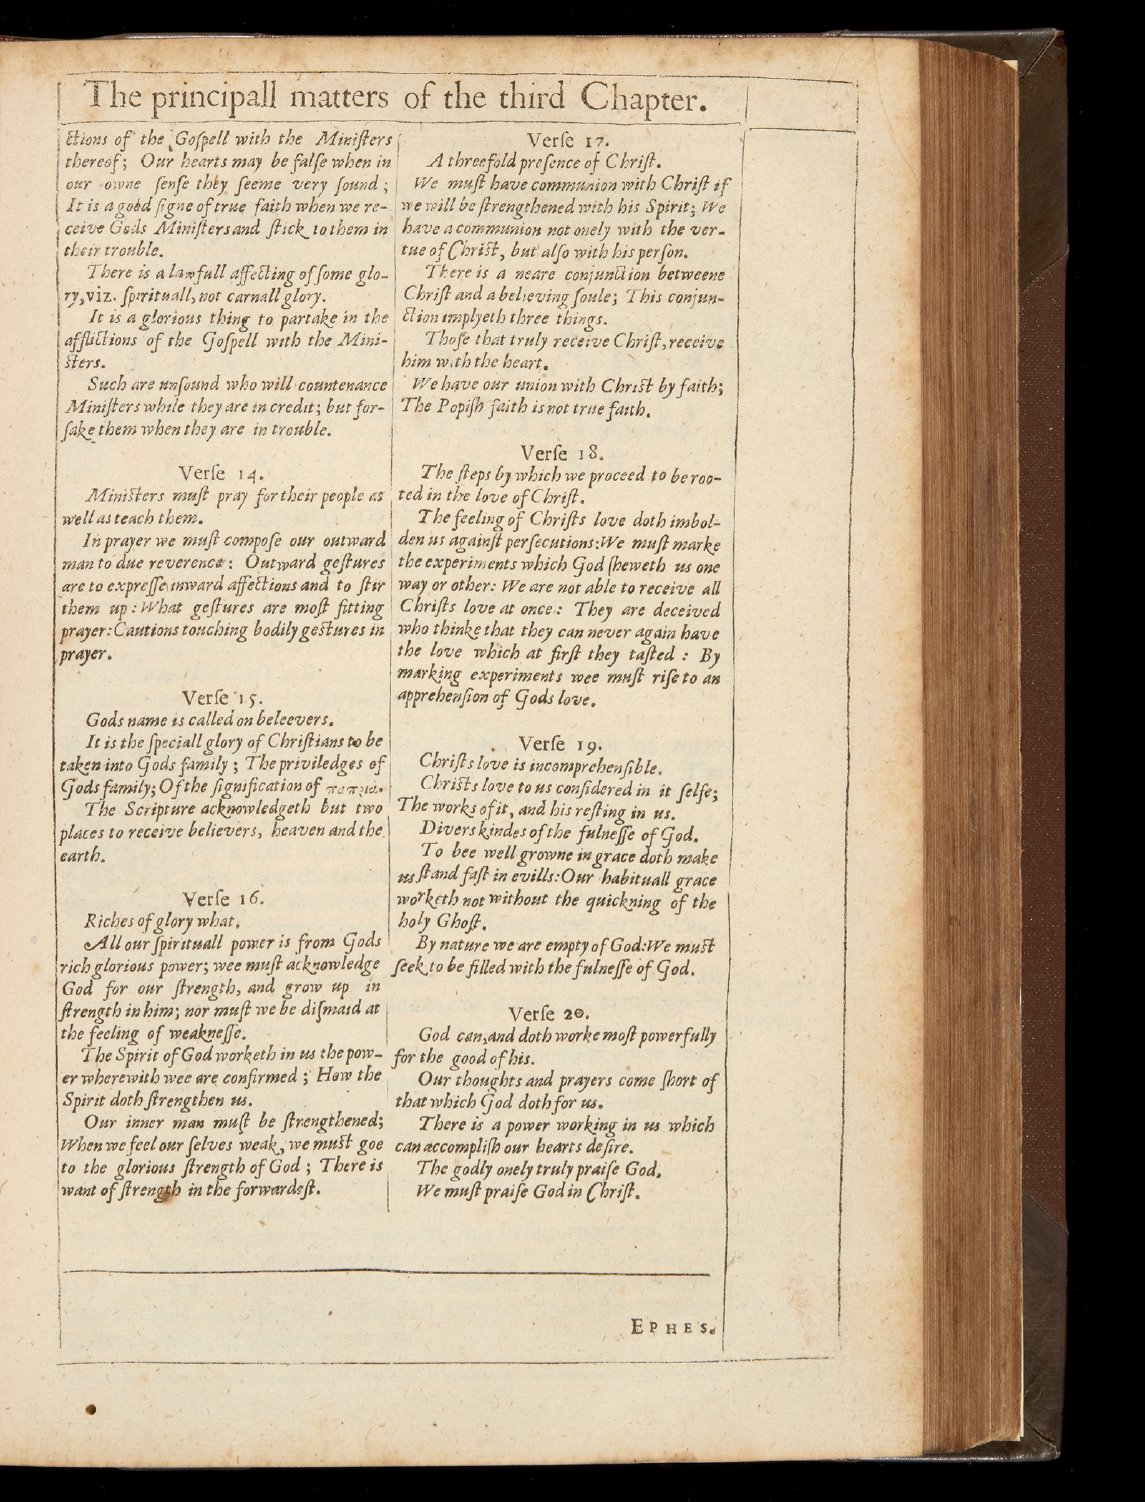 The principall matters of the third Chapter.
ctions of the Goſpell with the Miniſters
thereof; Our hearts may be falſe when in
our owne ſenſe they ſeeme very ſound;
It is a good ſigne of true faith when we re-
ceive Gods Miniſters and ſtick to them in
their trouble.
There is a lawfull affecting of ſome glo-
ry, viz. ſpirituall, not carnall glory.
It is a glorious thing to partake in the
afflictions of the Goſpell with the Mini-
ſters.
Such are unſound who will countenance
Miniſters while they are in credit; but for-
ſake them when they are in trouble.
Verſe 14.
Miniſters muſt pray for their people as
well as teach them.
In prayer we muſt compoſe our outward
man to due reverence: Outward geſtures
are to expreſſe inward affections and to ſtir
them up: What geſtures are moſt fitting
prayer: Cautions touching bodily geſtures in
prayer.
Verſe 15.
Gods name is called on beleevers.
It is the ſpeciall glory of Chriſtians to be
taken into Gods family; The priviledges of
Gods family; Of the ſignification of πατριὰ.
The Scripture acknowledgeth but two
places to receive believers, heaven and the
earth.
Verſe 16.
Riches of glory what.
All our ſpirituall power is from Gods
rich glorious power; wee muſt acknowledge
God for our ſtrength, and grow up in
ſtrength in him; nor muſt we be diſmaid at
the feeling of weakneſſe.
The Spirit of God worketh in us the pow-
er wherewith wee are confirmed; How the
Spirit doth ſtrengthen us.
Our inner man muſt be ſtrengthened;
When we feel our ſelves weak, we muſt goe
to the glorious ſtrength of God; There is
want of ſtrength in the forwardeſt.
Verſe 17.
A threefold preſence of Chriſt.
We muſt have communion with Chriſt if
we will be ſtrengthened with his Spirit; We
have a communion not onely with the ver-
tue of Chriſt, but alſo with his perſon.
There is a neare conjunction betweene
Chriſt and a believing ſoule; This conjun-
ction implyeth three things.
Thoſe that truly receive Chriſt, receive
him with the heart.
We have our union with Chriſt by faith;
The Popiſh faith is not true faith.
Verſe 18.
The ſteps by which we proceed to be roo-
ted in the love of Chriſt.
The feeling of Chriſts love doth imbol-
den us againſt perſecutions: We muſt marke
the experiments which God ſheweth us one
way or other: We are not able to receive all
Chriſts love at once: They are deceived
who thinke that they can never again have
the love which at firſt they taſted: By
marking experiments wee muſt riſe to an
apprehenſion of Gods love.
Verſe 19.
Chriſts love is incomprehenſible.
Chriſts love to us conſidered in it ſelfe;
The works of it, and his reſting in us.
Divers kindes of the fulneſſe of God.
To bee well growne in grace doth make
us ſtand faſt in evills: Our habituall grace
worketh not without the quickning of the
holy Ghoſt.
By nature we are empty of God: We muſt
ſeek to be filled with the fulneſſe of God.
Verſe 20.
God can, and doth worke moſt powerfully
for the good of his.
Our thoughts and prayers come ſhort of
that which God doth for us.
There is a power working in us which
can accompliſh our hearts deſire.
The godly onely truly praiſe God.
We muſt praiſe God in Chriſt.
EPHES.